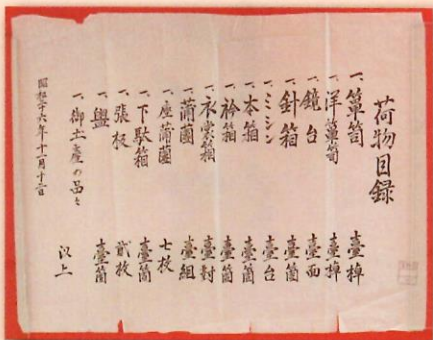 荷物目録
一、簞笥 壹棹
一、洋簞笥 壹棹
一、鏡台 壹面
一、針箱 壹箇
一、ミシン 壹台
一、本箱 壹箇
一、衿箱 壹箇
一、衣裳箱 壹封
一、蒲團 壹組
一、座蒲團 七枚
一、下駄箱 壹箇
一、張板 貳枚
一、盥 壹箇
一、御土産の品々
以上
昭和十六年十一月十二日